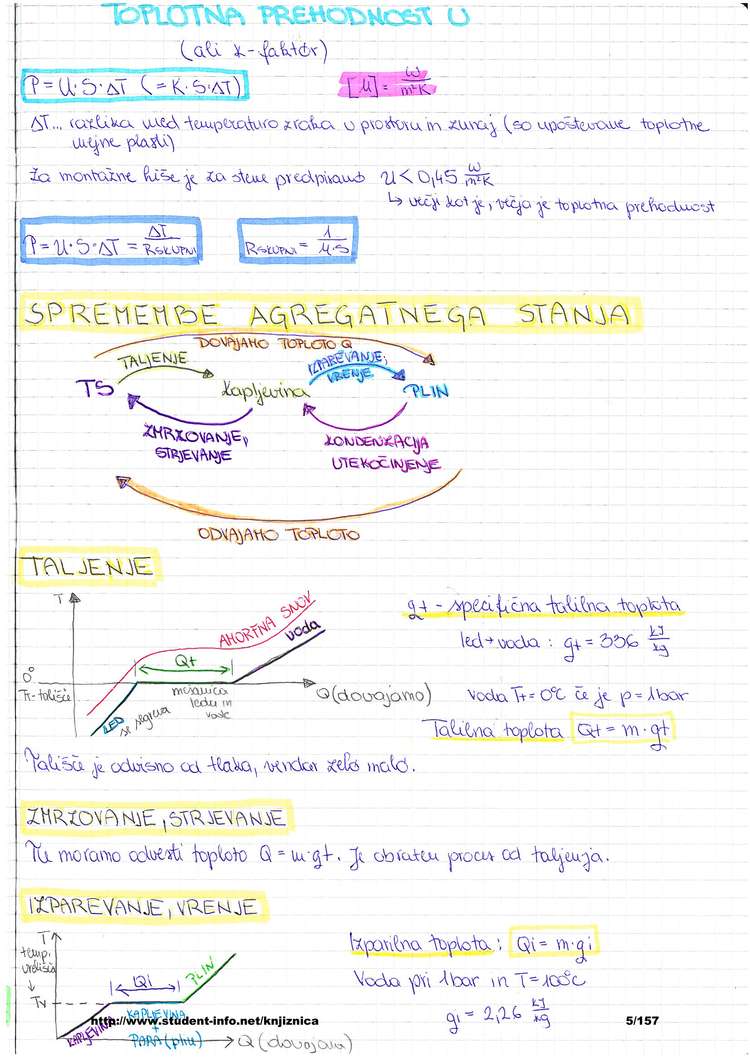 TOPLOTNA PREHODNOST U
(ali k-faktor)
P = U·S·ΔT (= K·S·ΔT)
[U] = W/m²K
ΔT... razlika med temperaturo zraka v prostoru in zunaj (so upoštevane toplotne
mejne plasti)
Za montažne hiše je za stene predpisano U < 0,45 W/m²K
↳ večji kot je, večja je toplotna prehodnost
P = U·S·ΔT = ΔT/RSKUPNI
RSKUPNI = 1/U·S
SPREMEMBE AGREGATNEGA STANJA
DOVAJAMO TOPLOTO Q
TALJENJE
IZPAREVANJE,
VRENJE
TS
kapljevina
PLIN
ZMRZOVANJE,
STRJEVANJE
KONDENZACIJA
UTEKOČINJENJE
ODVAJAMO TOPLOTO
TALJENJE
T
AMORFNA SNOV
voda
Qt
0°
Tt-tališče
mešanica
ledu in
vode
Q (dovajamo)
LED
se segreva
qt - specifična talilna toplota
led→voda : qt = 336 kJ/kg
voda Tt = 0°C če je p = 1bar
Talilna toplota Qt = m·qt
Tališče je odvisno od tlaka, vendar zelo malo.
ZMRZOVANJE, STRJEVANJE
Tu moramo odvesti toploto Q = m·qt. Je obraten proces od taljenja.
IZPAREVANJE, VRENJE
T
temp.
vrelišča
↓
Tv
Qi
PLIN
KAPLJEVINA
KAPLJEVINA
+
PARA (plin)
Q (dovajana)
Izparilna toplota: Qi = m·qi
Voda pri 1bar in T = 100°C
qi = 2,26 kJ/kg
http://www.student-info.net/knjiznica
5/157